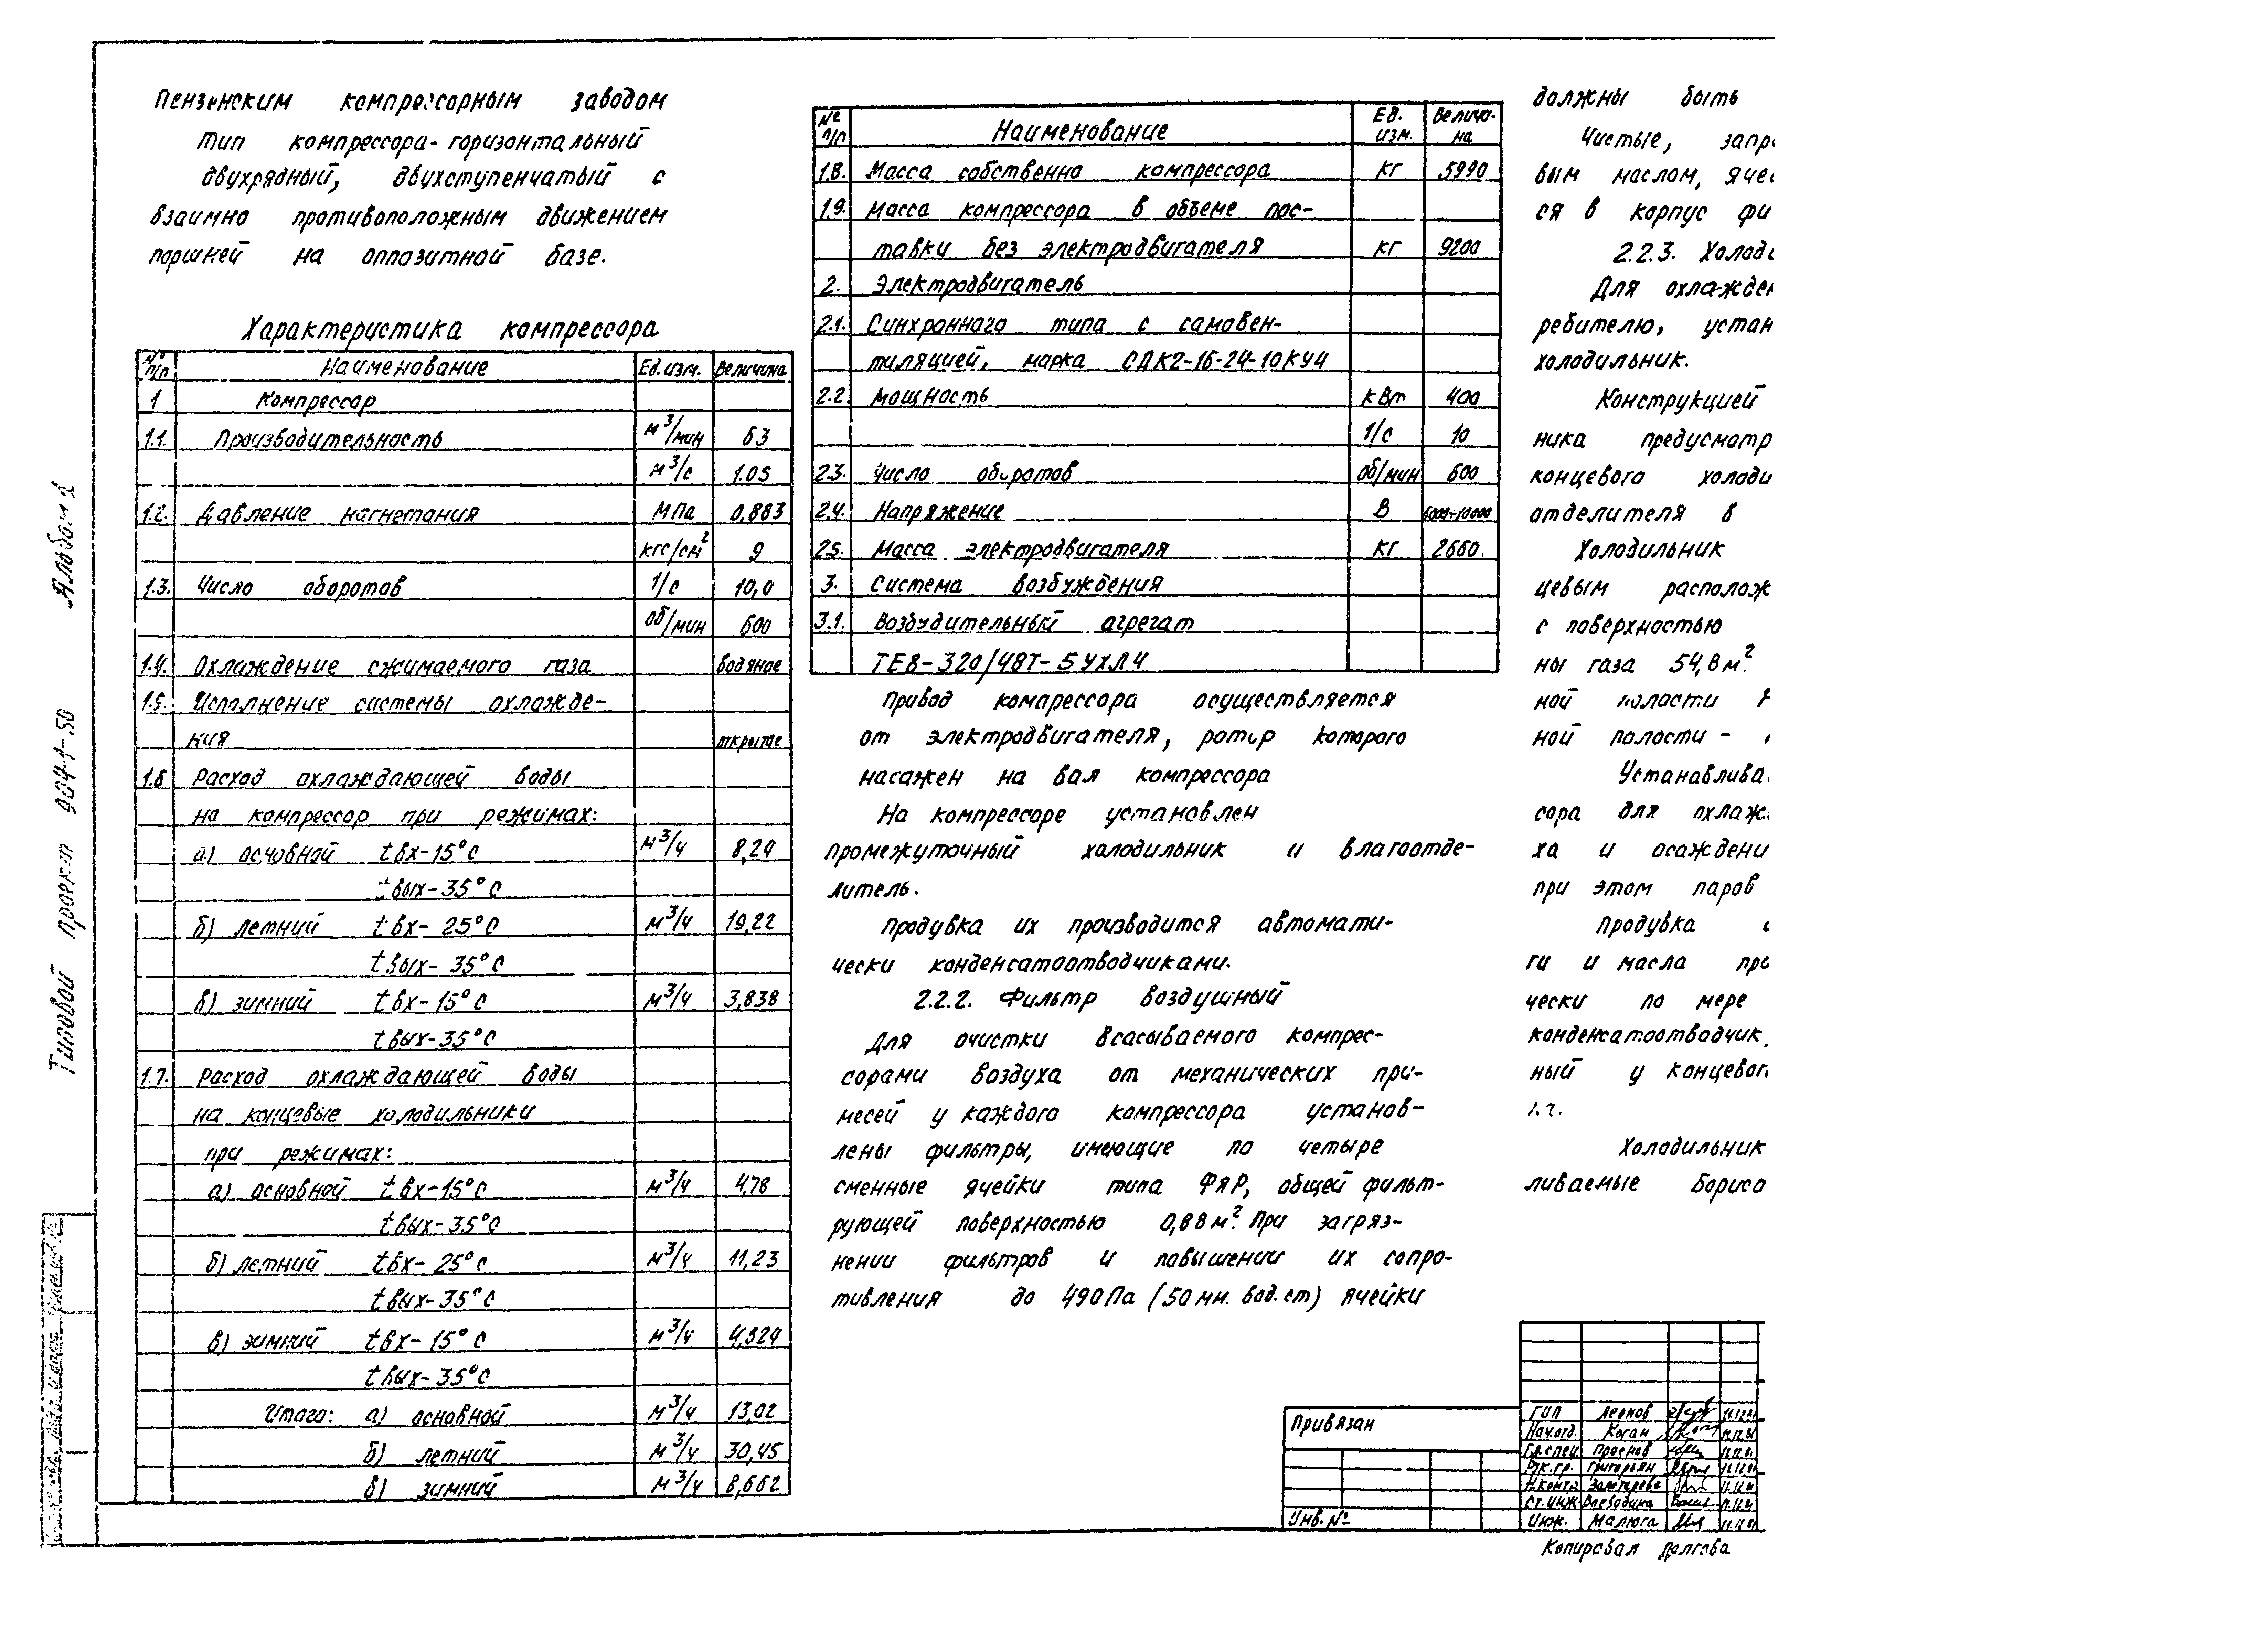 Пензенским компрессорным заводом
Тип компрессора - горизонтальный
двухрядный, двухступенчатый с
взаимно противоположным движением
поршней на оппозитной базе.
Характеристика компрессора
№ п/п Наименование Ед. изм. Величина
1 Компрессор
1.1. Производительность м³/мин 63
м³/с 1.05
1.2. Давление нагнетания МПа 0,883
кгс/см² 9
1.3. Число оборотов 1/с 10,0
об/мин 600
1.4. Охлаждение сжимаемого газа водяное
1.5. Исполнение системы охлажде-
ния
1.6 Расход охлаждающей воды
на компрессор при режимах:
а) основной tвх-15°С м³/ч 8,24
tвых-35°С
б) летний tвх-25°С м³/ч 19,22
tвых-35°С
в) зимний tвх-15°С м³/ч 3,838
tвых-35°С
1.7. Расход охлаждающей воды
на концевые холодильники
при режимах:
а) основной tвх-15°С м³/ч 4,78
tвых-35°С
б) летний tвх-25°С м³/ч 11,23
tвых-35°С
в) зимний tвх-15°С м³/ч 4,824
tвых-35°С
Итого: а) основной м³/ч 13,02
б) летний м³/ч 30,45
в) зимний м³/ч 8,662
№ п/п Наименование Ед. изм. Величи-
на
1.8. Масса собственно компрессора кг 5990
1.9. Масса компрессора в объеме пос-
тавки без электродвигателя кг 9200
2. Электродвигатель
2.1. Синхронного типа с самовен-
тиляцией, марка СДК2-16-24-10КУ4
2.2 Мощность кВт 400
1/с 10
2.3. Число оборотов об/мин 600
2.4. Напряжение В 6000÷10000
2.5. Масса электродвигателя кг 2660.
3. Система возбуждения
3.1. Возбудительный агрегат
ТЕ8-320/48Т-5УХЛ4
Привод компрессора осуществляется
от электродвигателя, ротор которого
насажен на вал компрессора
На компрессоре установлен
промежуточный холодильник и влагоотде-
литель.
Продувка их производится автомати-
чески конденсатоотводчиками.
2.2.2. Фильтр воздушный
Для очистки всасываемого компрес-
сорами воздуха от механических при-
месей у каждого компрессора установ-
лены фильтры, имеющие по четыре
сменные ячейки типа ФяР, общей фильт-
рующей поверхностью 0,88м². При загряз-
нении фильтров и повышении их сопро-
тивления до 490Па (50мм. вод. ст) ячейки
должны быть
Чистые, запр
вым маслом, ячес
ся в корпус фи
2.2.3. Холоди
Для охлажден
ребителю, устан
холодильник.
Конструкцией
ника предусмотр
концевого холоди
отделителя в
Холодильник
цевым располож
с поверхностью
ны газа 54,8м²
ной полости
ной полости -
Устанавлива
сора для охлаж
ха и осаждени
при этом паров
Продувка
ги и масла про
чески по мере
конденсатоотводчик
ный у концевог
Холодильник
ливаемые Борисо
Типовой проект 904-1-50 Альбом 1
Привязан
Инв. №
ГИП Леонов
Нач.отд. Коган
Гл.спец. Преснов
Рук.гр. Григорьян
Н.контр.
Ст.инж. Воеводина
Инж. Малюга
Копировал Долгова